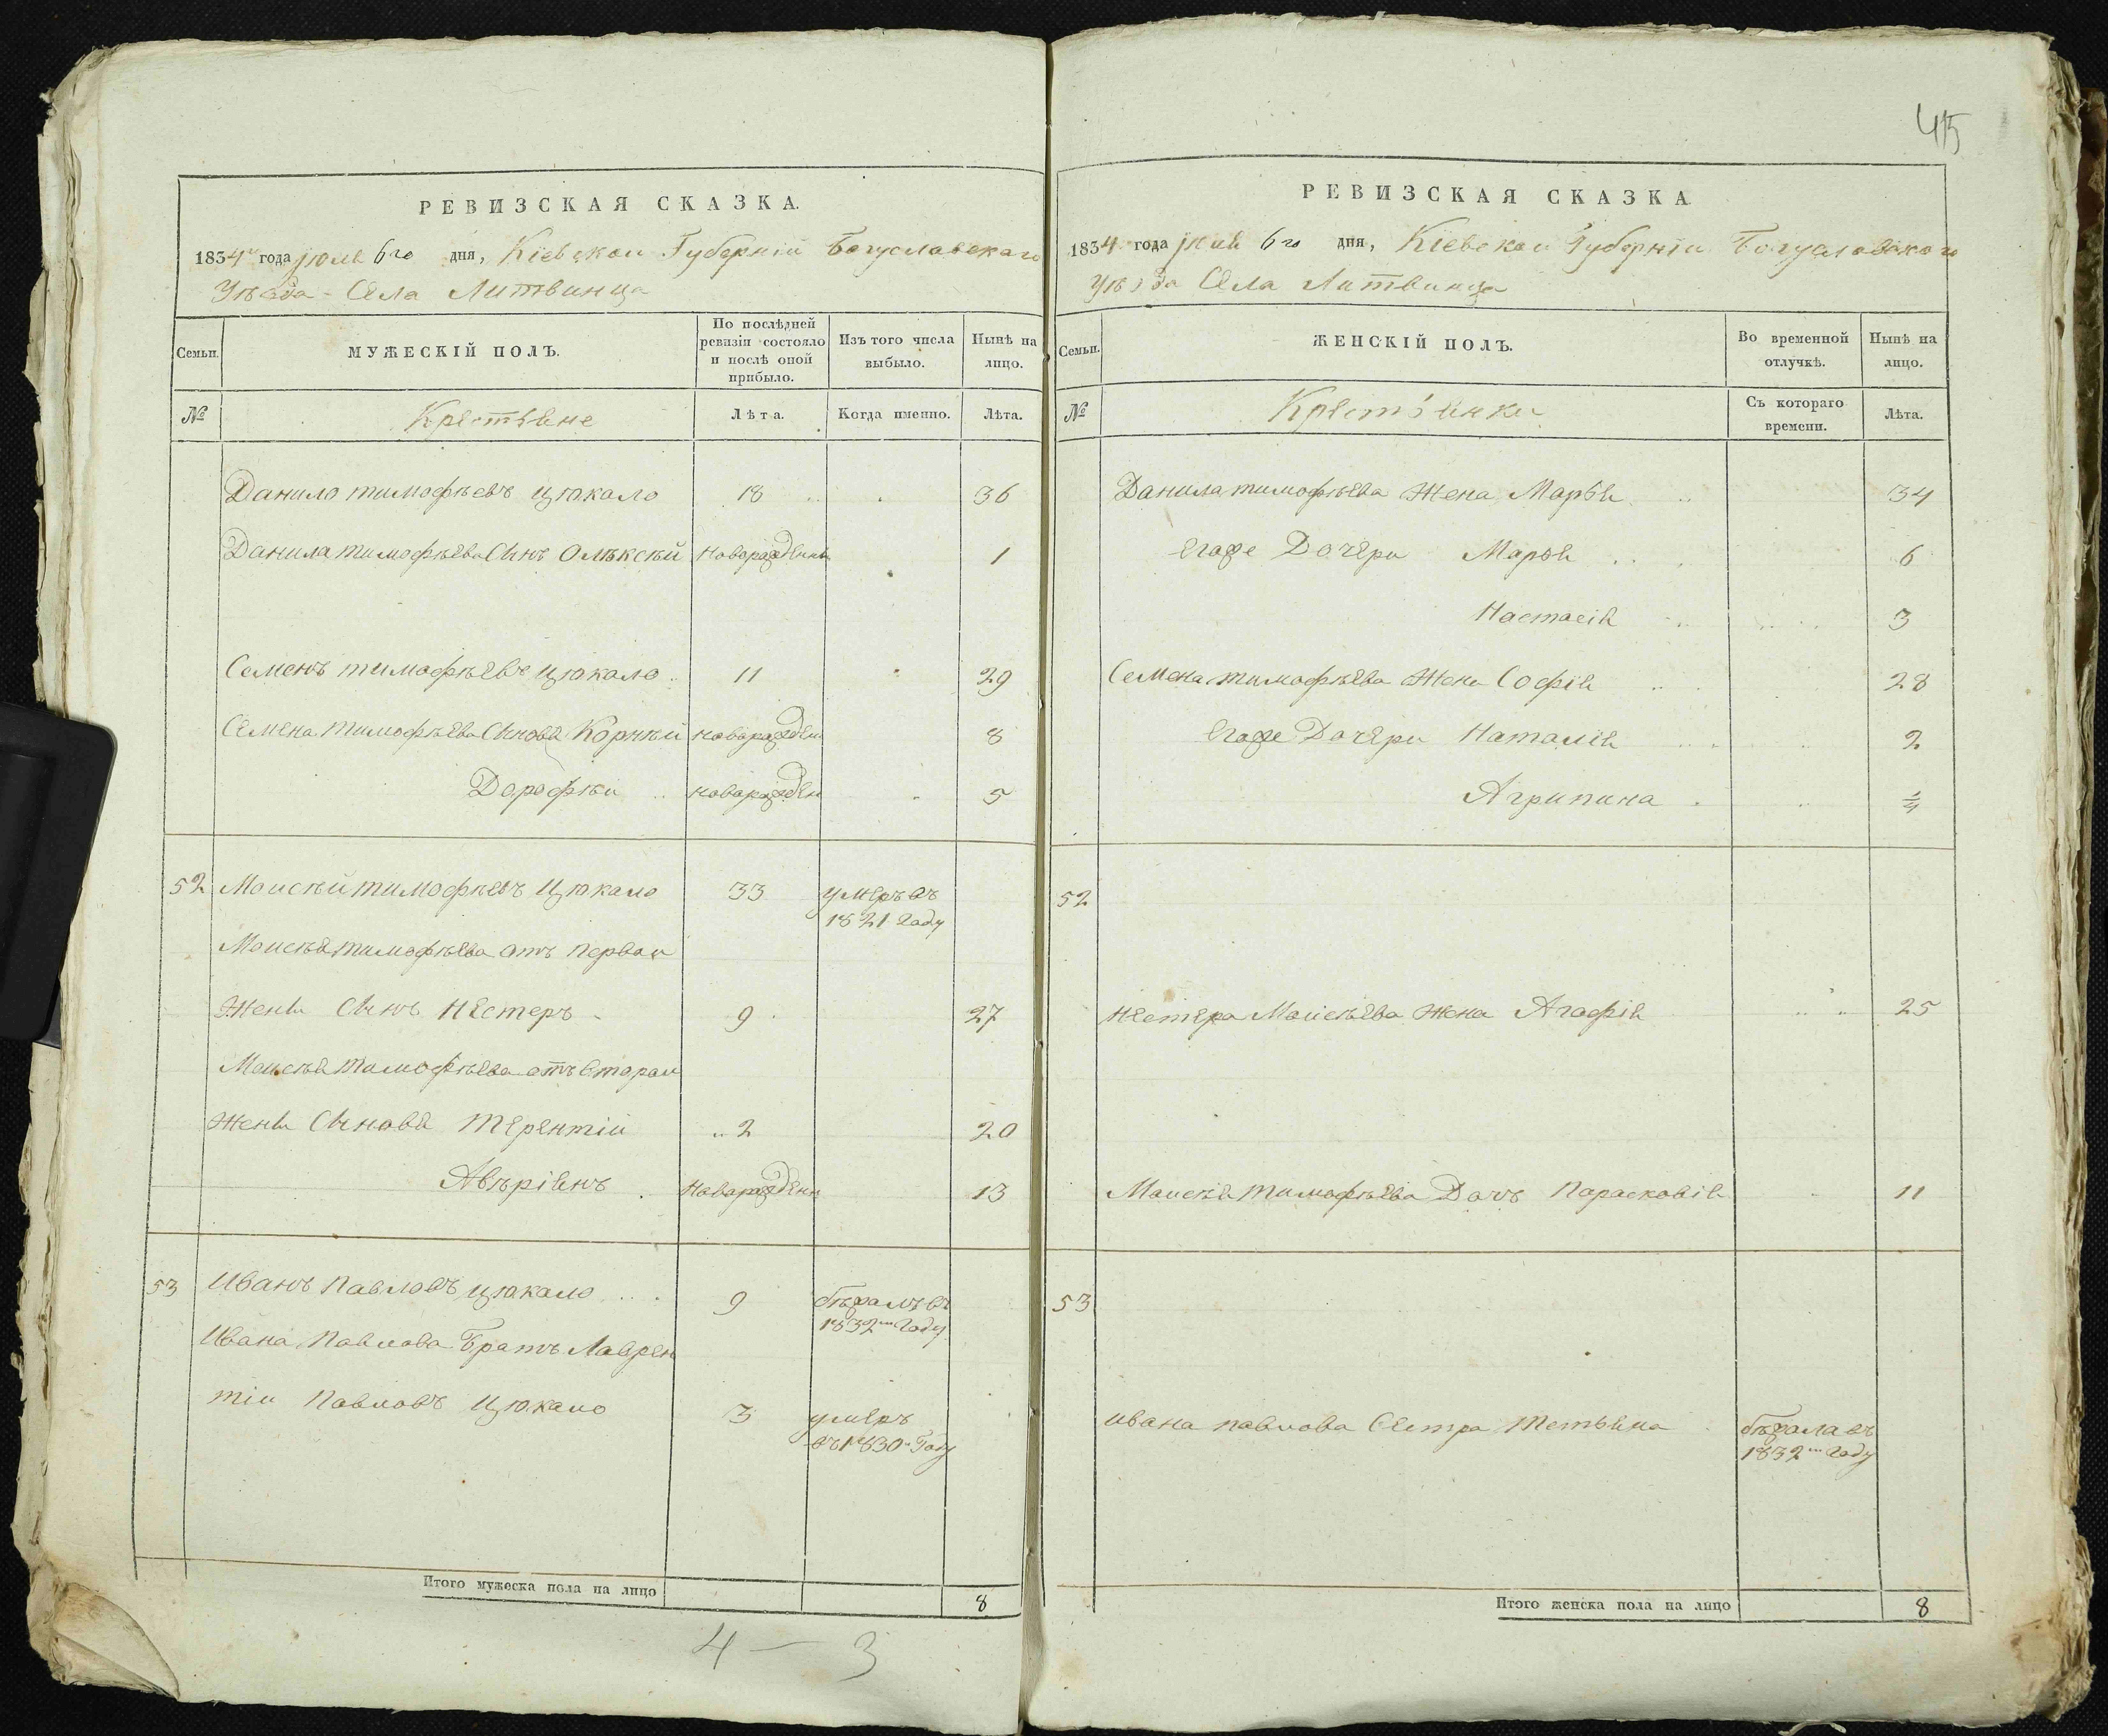 РЕВИЗСКАЯ СКАЗКА.
1834 года июля 6го дня, Кіевской Губерніи Богуславскаго
Уѣзда Села Литвинца
Семьи. МУЖЕСКІЙ ПОЛЪ. По послѣдней ревизіи состояло и послѣ оной прибыло. Изъ того числа выбыло. Нынѣ на лицо.
№ Крестьяне Лѣта. Когда именно. Лѣта.
Данило тимофѣевъ цюкало 18 36
Данила тимофѣева Сынъ Олѣксѣй новорожденъ 1
Семенъ тимофѣевъ цюкало 11 29
Семена тимофѣева Сыновя Корнѣй новорожден 8
Дорофѣй новорожден 5
52 Моисѣй тимофѣевъ Цюкало 33 умеръ въ
1821 году
Моисѣя тимофѣева отъ первой
Жены Сынъ Нестеръ 9 27
Моисѣя тимофѣева отъ второй
Жены Сыновя Терентій 2 20
Авѣріянъ новорожденъ 13
53 Иванъ Павловъ цюкало 9 бѣжалъ въ
1832 году
Ивана Павлова Братъ Лаврен
тій Павловъ Цюкало 3 умеръ
въ 1830 Году
Итого мужеска пола на лицо 8
4 — 3
45
РЕВИЗСКАЯ СКАЗКА
1834 года июля 6го дня, Кіевской Губерніи Богуславскаго
Уѣзда Села Литвинца
Семьи. ЖЕНСКІЙ ПОЛЪ. Во временной отлучкѣ. Нынѣ на лицо.
№ Крестьянки Съ котораго времени. Лѣта.
Данила тимофѣева Жена Марья 34
Егоже Дочери Марья 6
Настасія 3
Семена тимофѣева Жена Софія 28
Егоже Дочери Наталія 2
Агрипина ¼
52
Нестера Моисѣева Жена Агафія 25
Моисѣя тимофѣева Дочь Парасковія 11
53
Ивана павлова Сестра Тетьяна бѣжала въ
1832 году
Итого женска пола на лицо 8